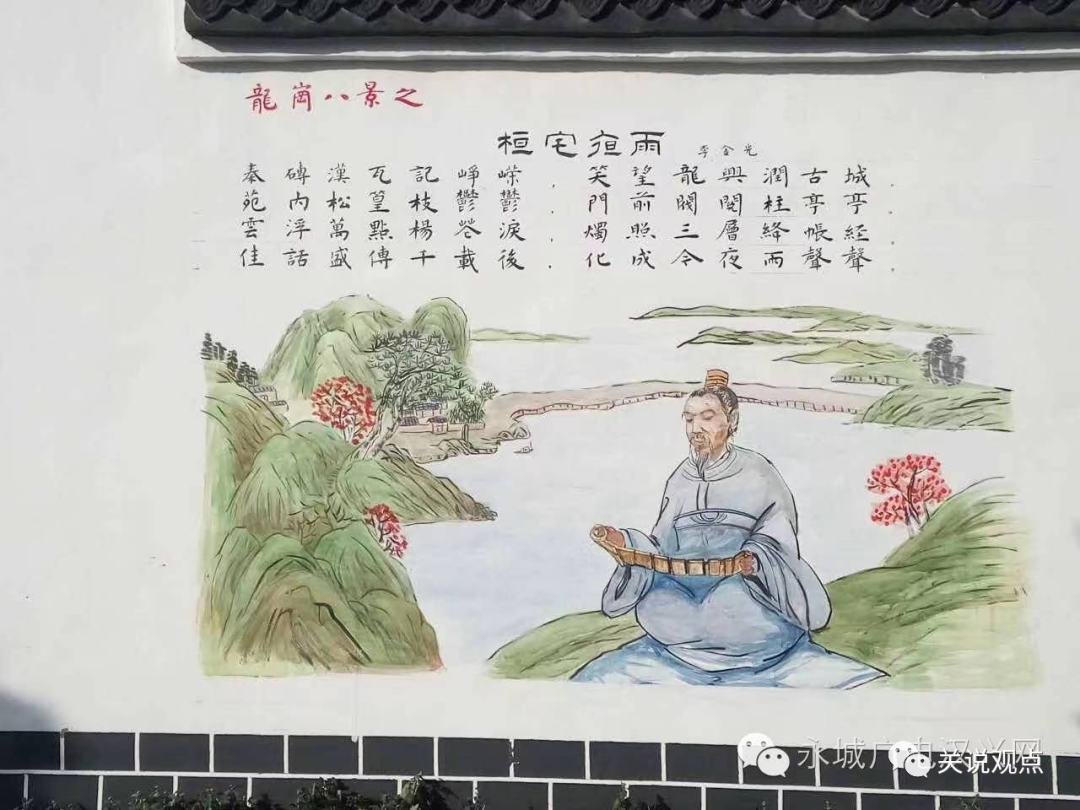 龍崗八景之
桓宅夜雨 李金光
秦磚漢瓦記崢嶸，笑望龍興潤古城。
苑内松篁枝鬱鬱，門前閥閲柱亭亭。
雲浮萬點楊花淚，燭照三層絳帳経。
佳話盛傳千載後，化成令夜雨聲聲。
永城广电汉兴网
关说观点